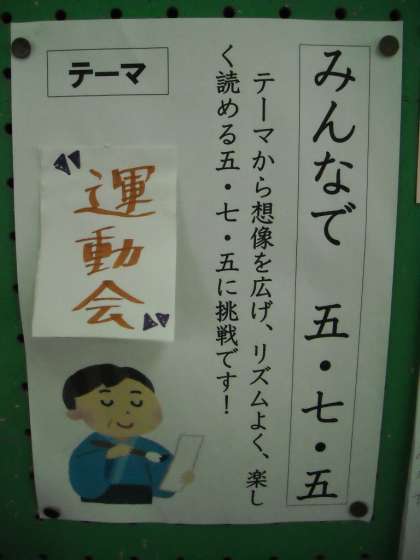 みんなで 五・七・五
テーマから想像を広げ、リズムよく、楽し
く読める五・七・五に挑戦です！
テーマ
"運動会"